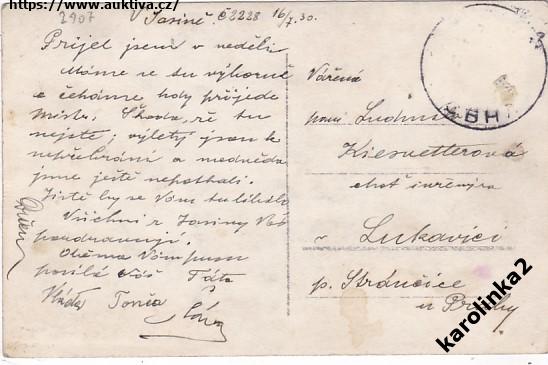 https://www.auktiva.cz/
2907
V Jasině. č2228 16/7.30.
Přijel jsem v neděli
Máme se tu výborně
a čekáme kdy přijede
místr. Škoda, že tu
nejste; výlety jsou k
nepřebrání a medvěda
jsme ještě nepotkali.
Jistě by se Vám tu líbilo
Všichni z Jasiny Vás
pozdravují.
Oběma Vám pusu
posílá Váš Táta
Vláďa Tonča
Vážená
paní Ludmi
Kiesvetterová
choť inženýra
v Lukavici
p. Stránčice
u Prahy
karolinka2